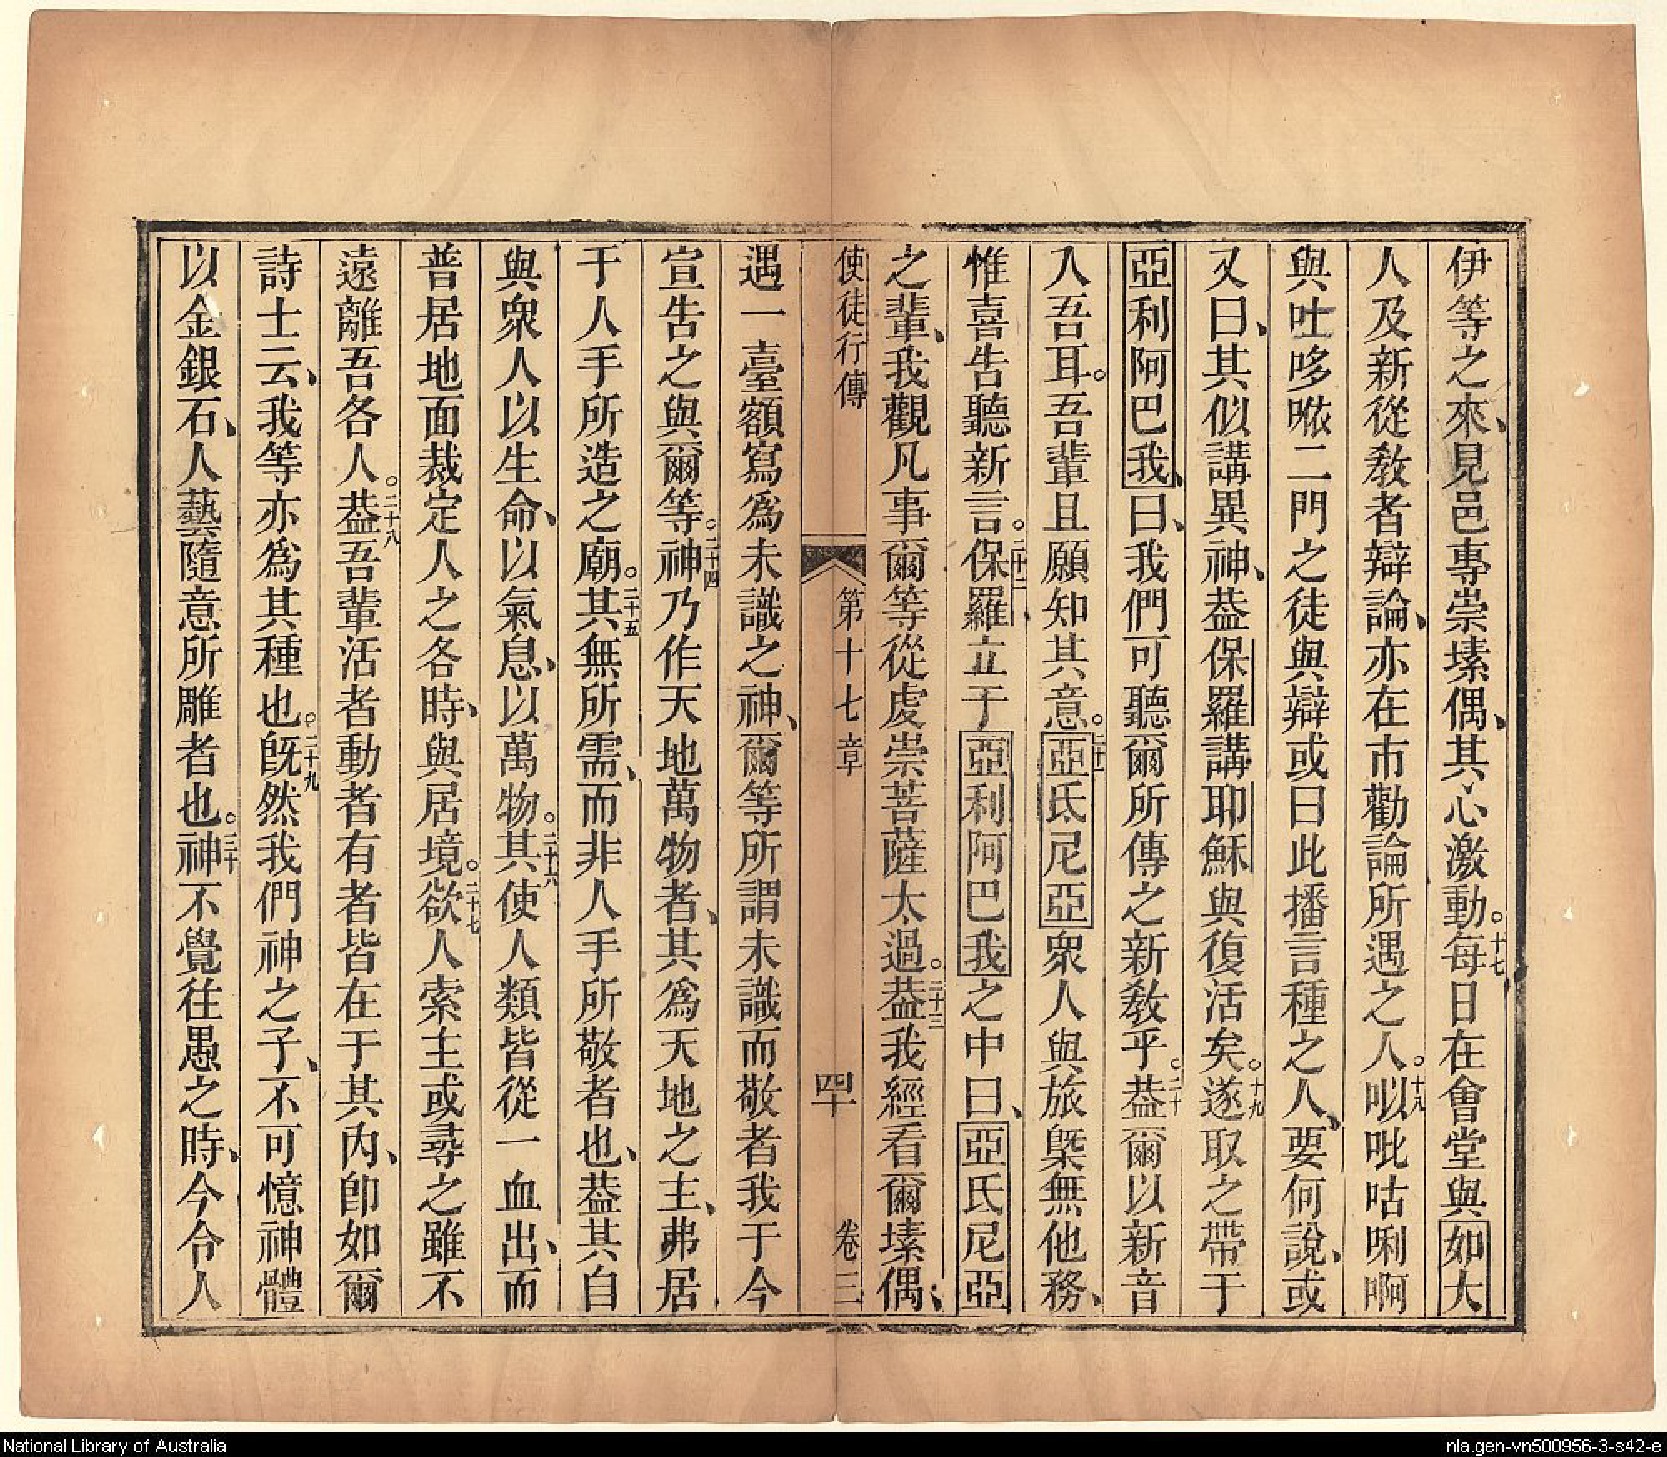 伊等之來、見邑專崇塐偶、其心激動。十七每日在會堂與如大
人及新從教者辯論、亦在市勸論所遇之人。十八㕥吡咕唎啊
與吐哆𠺝二門之徒與辯或曰此播言種之人、要何說、或
又曰、其似講異神、葢保羅講耶穌與復活矣。十九遂取之帶于
亞利阿巴我、曰、我們可聽爾所傳之新教乎。二十葢爾以新音
入吾耳。吾輩且願知其意。二十一亞氐尼亞眾人與旅槩無他務、
惟喜告聽新言。二十二保羅立于亞利阿巴我之中曰、亞氐尼亞
之輩、我觀凡事爾等從虔崇菩薩太過。二十三葢我經看爾塐偶、
使徒行傳 第十七章 四十 卷三
遇一臺額寫爲未識之神、爾等所謂未識而敬者我于今
宣告之與爾等。二十四神乃作天地萬物者、其爲天地之主、弗居
于人手所造之廟。二十五其無所需、而非人手所敬者也、葢其自
與眾人以生命、以氣息、以萬物。二十六其使人類皆從一血出、而
普居地面裁定人之各時、與居境。二十七欲人索主或尋之雖不
遠離吾各人。二十八葢吾輩活者動者有者皆在于其內、即如爾
詩士云、我等亦爲其種也。二十九旣然我們神之子、不可憶神體
以金銀石、人藝隨意所雕者也。三十神不覺往愚之時、今令人